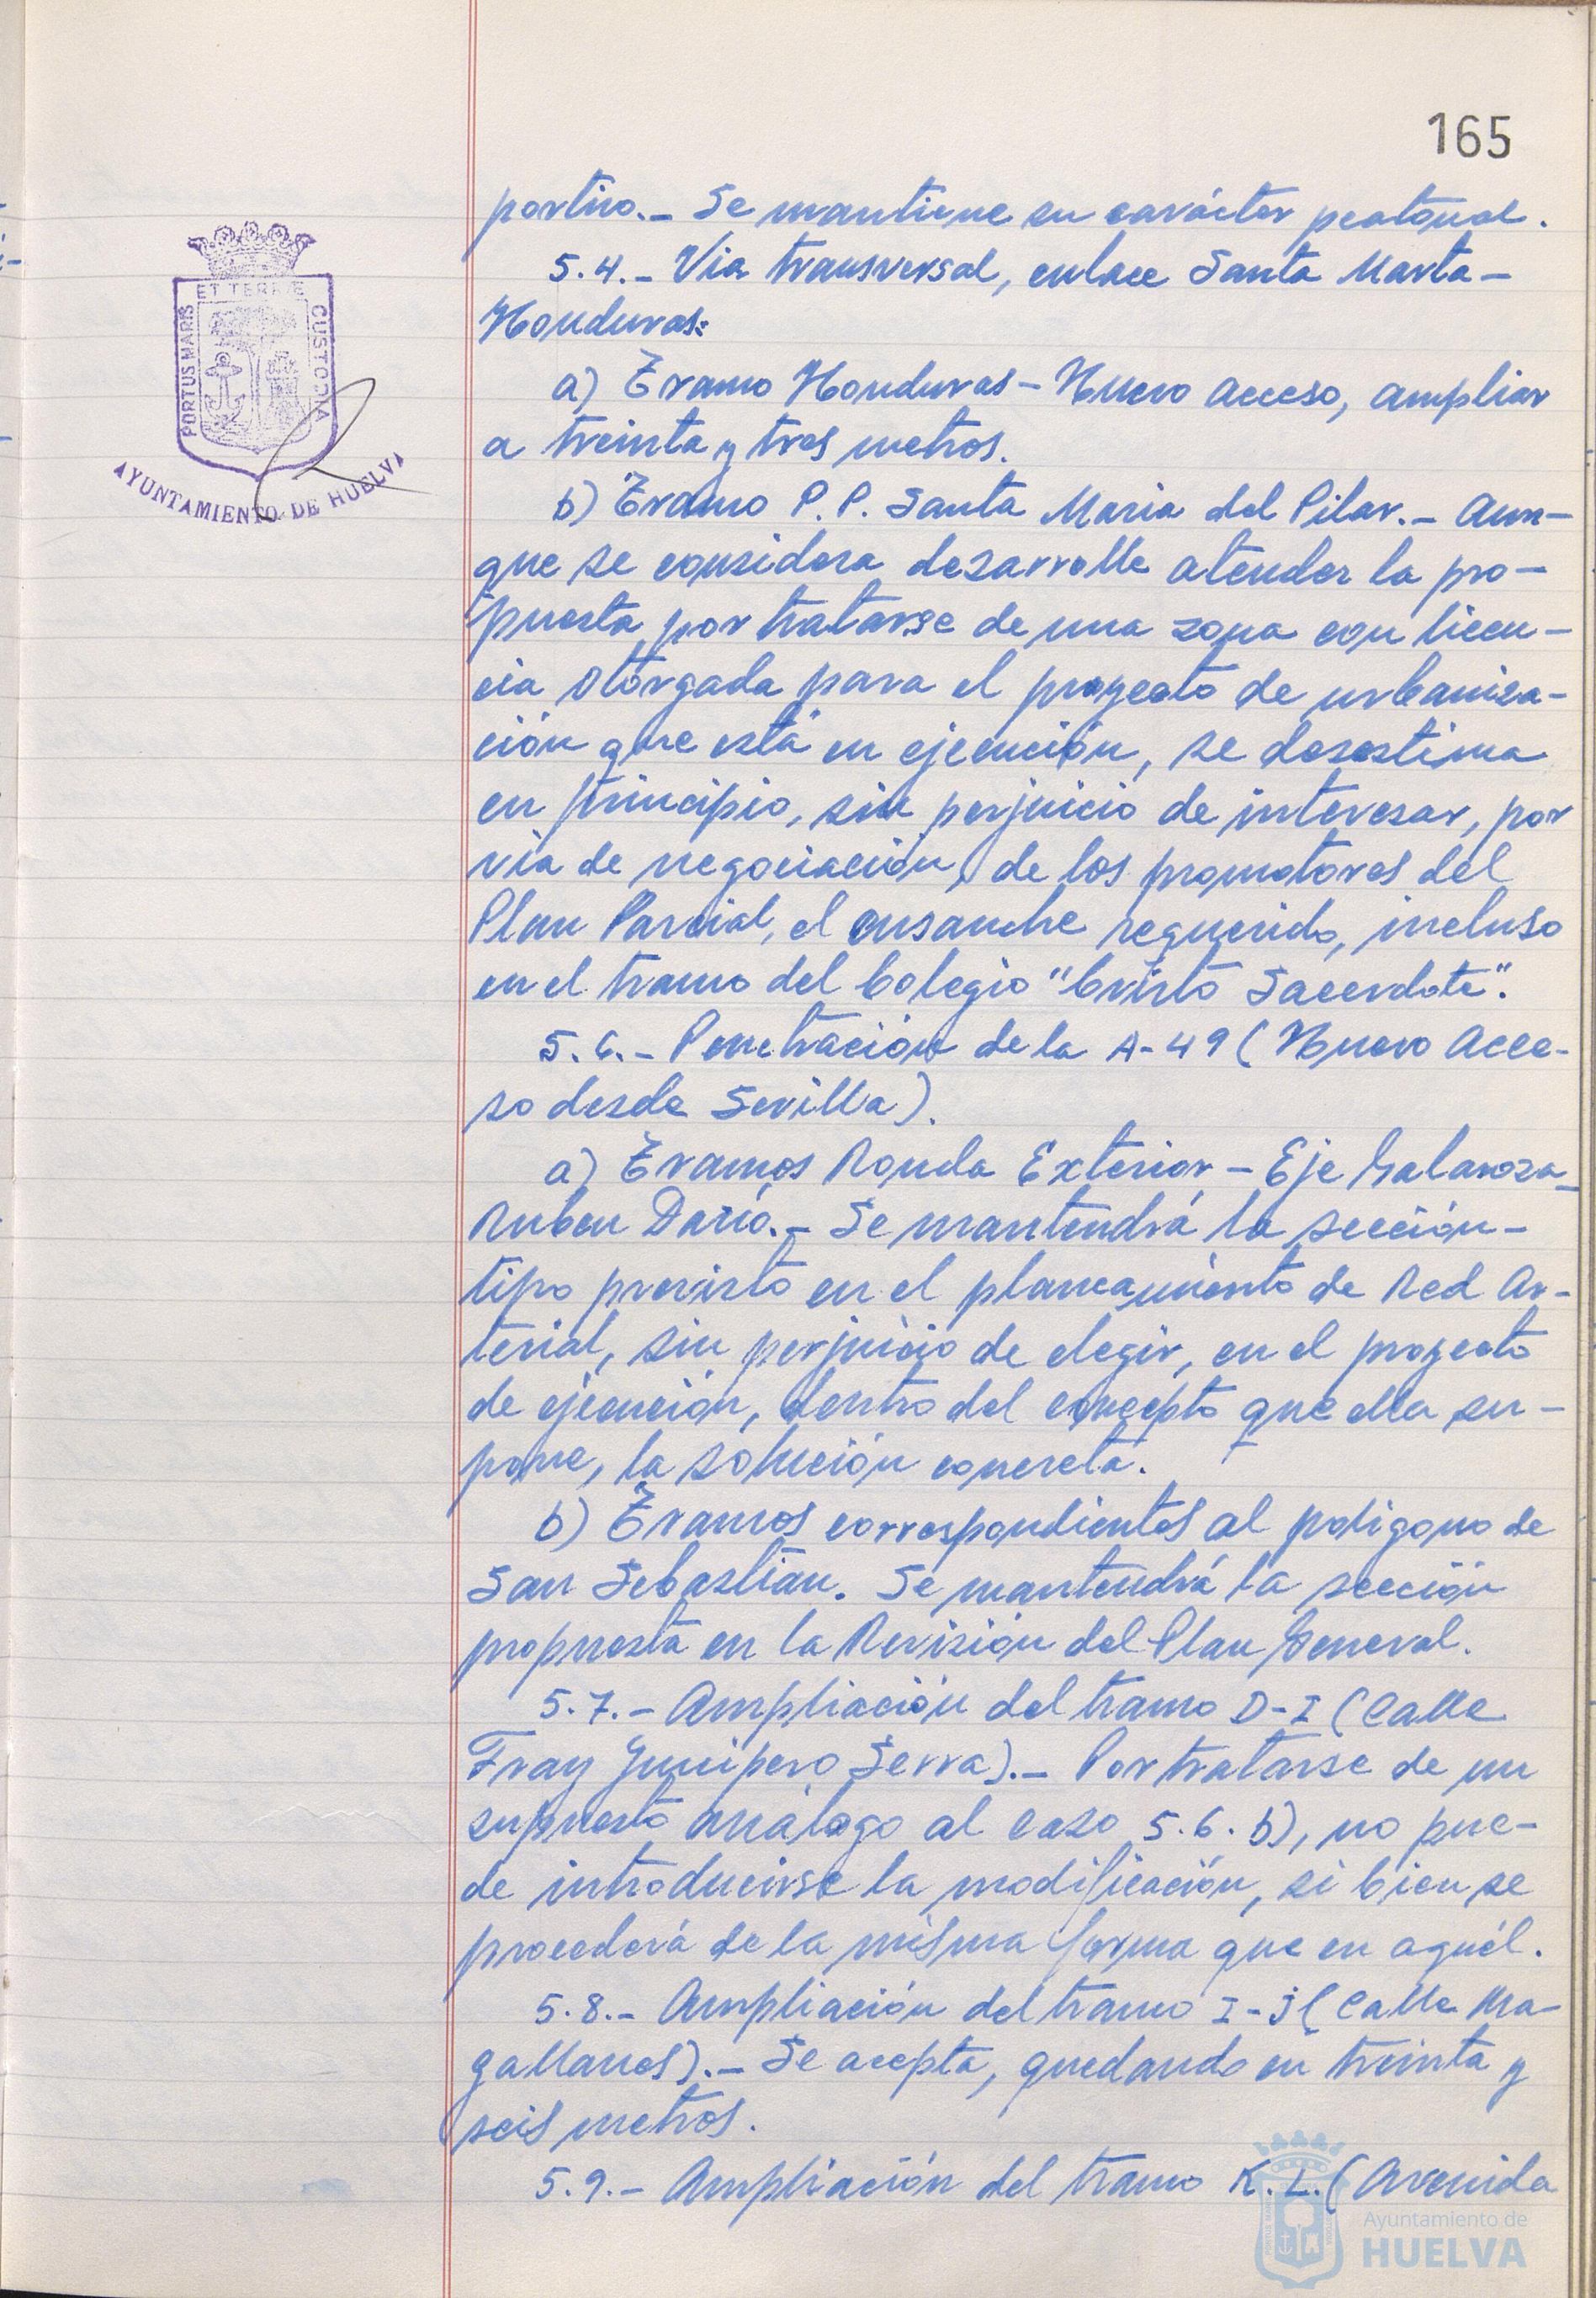 165
portivo.- Se mantiene su carácter peatonal.
5.4.- Via transversal, enlace Santa Marta-
Honduras:
a) Tramo Honduras - Nuevo Acceso, ampliar
a treinta y tres metros.
b) Tramo P.P. Santa Maria del Pilar.- Aun-
que se considera desarrolle atender la pro-
puesta por tratarse de una zona con licen-
cia otorgada para el proyecto de urbaniza-
ción que está en ejecución, se desestima
en principio, sin perjuicio de interesar, por
via de negociación, de los promotores del
Plan Parcial, el ensanche requerido, incluso
en el tramo del Colegio "Cristo Sacerdote".
5.6.- Penetración de la A-49 (Nuevo Acce-
so desde Sevilla).
a) Tramos Ronda Exterior - Eje Galaroza-
Ruben Darío.- Se mantendrá la sección-
tipo previsto en el planeamiento de Red Ar-
terial, sin perjuicio de elegir, en el proyecto
de ejecución, dentro del concepto que ella su-
pone, la solución concreta.
b) Tramos correspondientes al poligono de
San Sebastián. Se mantendrá la sección
propuesta en la Revisión del Plan General.
5.7.- Ampliación del tramo D-I (Calle
Fray Junipero Serra).- Por tratarse de un
supuesto análogo al caso 5.6.b), no pue-
de introducirse la modificación, si bien se
procederá de la misma forma que en aquél.
5.8.- Ampliación del tramo I-J (Calle Ma-
gallanes).- Se acepta, quedando en treinta y
seis metros.
5.9.- Ampliación del tramo K.L. (Avenida
PORTUS MARIS
ET TERRAE
CUSTODIA
AYUNTAMIENTO DE HUELVA
Ayuntamiento de
HUELVA